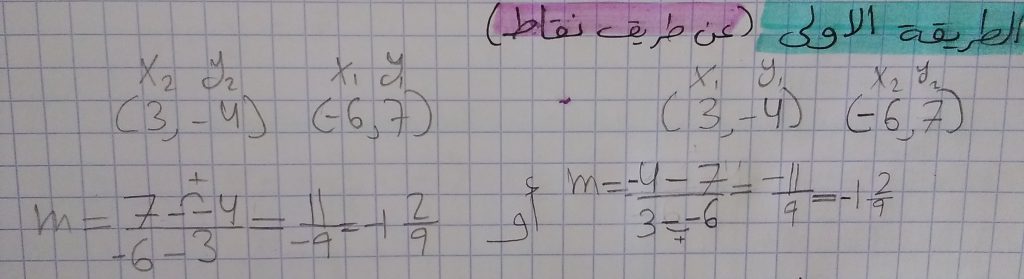 الطريقة الاولى (عن طريق نقاط)
x₁ y₁ x₂ y₂
(3, -4) (-6, 7)
m = -4 - 7 / 3 - -6 = -11 / 9 = -1 2/9
أو
x₂ y₂ x₁ y₁
(3, -4) (-6, 7)
m = 7 - -4 / -6 - 3 = 11 / -9 = -1 2/9